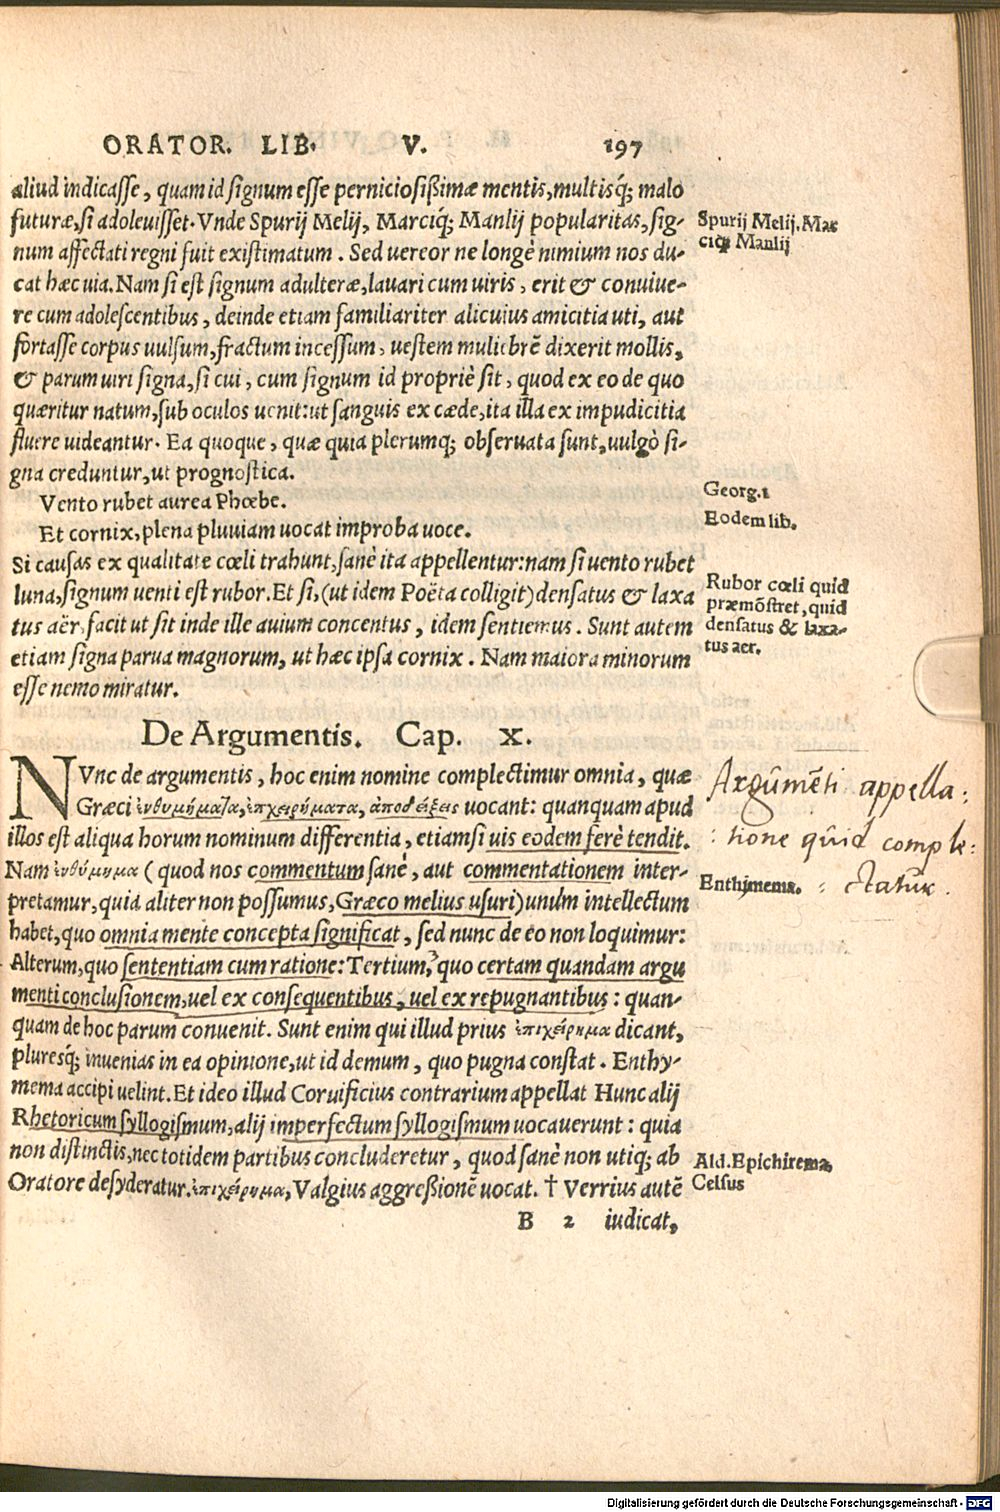 ORATOR. LIB. V. 197
aliud indicasse, quam id signum esse perniciosißimæ mentis, multisq́; malo
futuræ, si adoleuisset. Vnde Spurij Melij, Marciq́; Manlij popularitas, sig-
num affectati regni fuit existimatum. Sed uereor ne longè nimium nos du-
cat hæc uia. Nam si est signum adulteræ, lauari cum uiris, erit & conuiue-
re cum adolescentibus, deinde etiam familiariter alicuius amicitia uti, aut
fortasse corpus uulsum, fractum incessum, uestem muliebrẽ dixerit mollis,
& parum uiri signa, si cui, cum signum id propriè sit, quod ex eo de quo
quæritur natum, sub oculos uenit: ut sanguis ex cæde, ita illa ex impudicitia
fluere uideantur. Ea quoque, quæ quia plerumq́; obseruata sunt, uulgò si-
gna creduntur, ut prognostica.
Vento rubet aurea Phœbe.
Et cornix, plena pluuiam uocat improba uoce.
Si causas ex qualitate cœli trahunt, sanè ita appellentur: nam si uento rubet
luna, signum uenti est rubor. Et si, (ut idem Poëta colligit) densatus & laxa
tus aër, facit ut sit inde ille auium concentus, idem sentiemus. Sunt autem
etiam signa parua magnorum, ut hæc ipsa cornix. Nam maiora minorum
esse nemo miratur.
Spurij Melij. Mar
ciq́; Manlij
Georg. 1
Eodem lib.
Rubor cœli quid
præmõstret, quid
densatus & laxa-
tus aer.
De Argumentis. Cap. X.
NVnc de argumentis, hoc enim nomine complectimur omnia, quæ
Græci ἐνθυμήματα, ἐπιχειρήματα, ἀποδείξεις uocant: quanquam apud
illos est aliqua horum nominum differentia, etiamsi uis eodem ferè tendit.
Nam ἐνθύμημα (quod nos commentum sanè, aut commentationem inter-
pretamur, quid aliter non possumus, Græco melius usuri) unum intellectum
habet, quo omnia mente concepta significat, sed nunc de eo non loquimur:
Alterum, quo sententiam cum ratione: Tertium, quo certam quandam argu
menti conclusionem, uel ex consequentibus, uel ex repugnantibus: quan-
quam de hoc parum conuenit. Sunt enim qui illud prius ἐπιχείρημα dicant,
pluresq́; inuenias in ea opinione, ut id demum, quo pugna constat. Enthy-
mema accipi uelint. Et ideo illud Coruificius contrarium appellat Hunc alij
Rhetoricum syllogismum, alij imperfectum syllogismum uocauerunt: quia
non distinctis, nec totidem partibus concluderetur, quod sanè non utiq́; ab
Oratore desyderatur. ἐπιχείρημα, Valgius aggreßionẽ uocat. † Verrius autẽ
B 2 iudicat,
Argũmẽti appella:
:tione quid comple:
:ctatur.
Enthymema.
Ald. Epichirema
Celsus
Digitalisierung gefördert durch die Deutsche Forschungsgemeinschaft - DFG